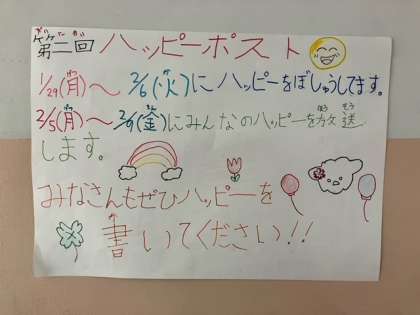 第二回ハッピーポスト
1/29(月)〜2/6(火)にハッピーをぼしゅうしてます。
2/5(月)〜2/9(金)にみんなのハッピーを放送
します。
みなさんもぜひハッピーを
書いてください!!